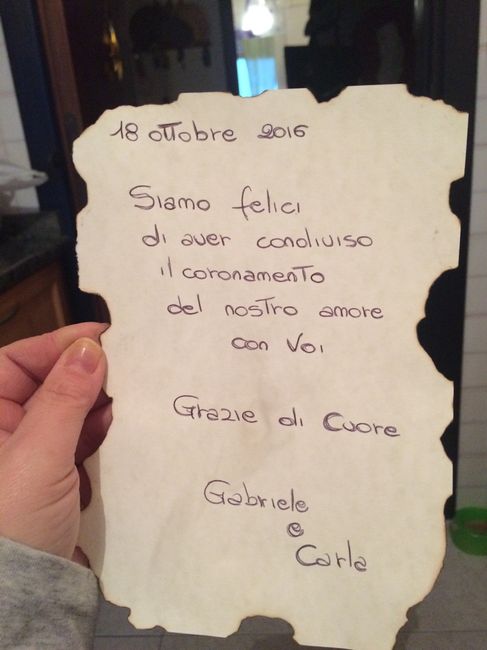 18 ottobre 2016
Siamo felici
di aver condiviso
il coronamento
del nostro amore
con Voi
Grazie di Cuore
Gabriele
e
Carla